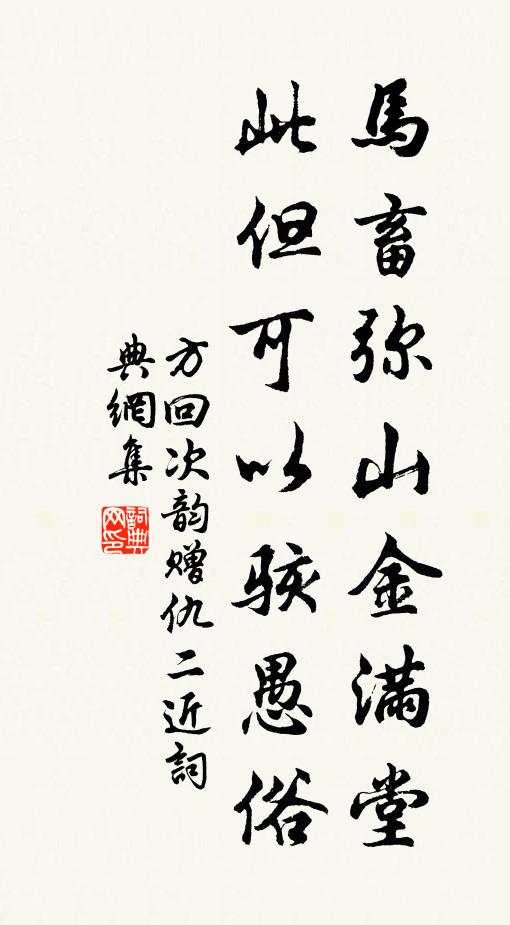 馬畜弥山金滿堂
此但可以駭愚俗
方回次韵赠仇二近詞
典網集
詞典
网印